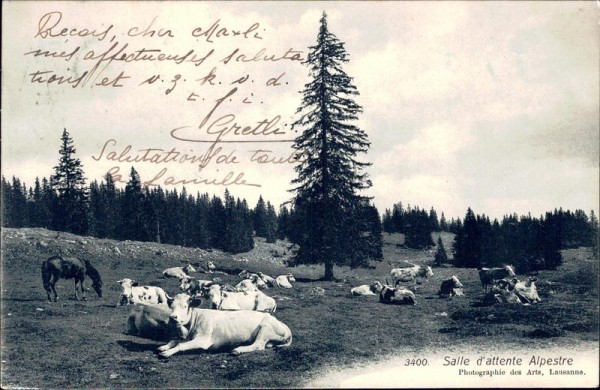 Reçois, cher Maxli
mes affectueuses saluta
tions et v. z. k. v. d.
t. f. i.
Gretli
Salutation de toute
la famille
3400. Salle d'attente Alpestre
Photographie des Arts, Lausanne.